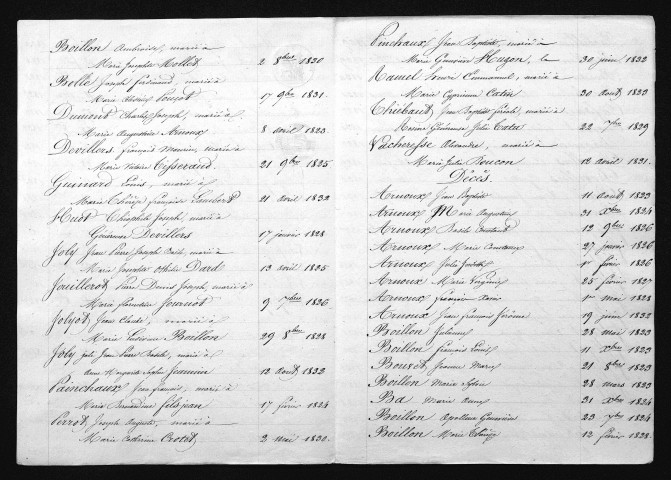 Boillon Ambroise, marié à
Marie Josephte Mollet 2 8bre 1830
Bolle Joseph Ferdinand, marié à
Marie Thérèse 17 9bre 1831.
Dumont Charles Joseph, marié à
Marie Augustine Arnoux 8 avril 1823.
Devillers François Maurice, marié à
Marie Tisserand 21 9bre 1825
Guinard Louis, marié à
Marie Thérèse Françoise Lambert 21 avril 1832
Huot Théophile Joseph, marié à
Devillers 17 janvier 1828.
Joly Jean Pierre Joseph marié à
Marie Josephte Othilie Dard 13 avril 1825
Jouillerot Pierre Denis Joseph, marié à
Marie Florentine Journot 9 7bre 1826
Jolyot Jean Claude, marié à
Marie Boillon 29 8bre 1828
Joly Jean Pierre marié à
Anne Sophie Jeannin 12 août 1832
Painchaux Jean François, marié à
Marie Bernardine Feliojean 17 févrir 1824
Perrot Joseph Auguste, marié à
Marie Catherine Crotet 2 mai 1830.
Pinchaux Jean Baptiste, marié à
Marie Geneviève Hugon, le 30 juin 1832
marié à
Marie Cyprienne Catin 30 août 1823
Thiébaut Jean Baptiste marié à
Julie Catin 22 7bre 1829
Vacheresse Alexandre, marié à
Marie Julie Boucon 12 avril 1831.
Décès.
Arnoux Jean Baptiste 11 août 1823
Arnoux Marie Augustine 31 Xbre 1824
Arnoux Basile Constant 12 9bre 1826
Arnoux Marie 27 janvir 1826
Arnoux Julie 1er févrir 1826
Arnoux Marie Virginie 25 févrir 1827
Arnoux François Xavier 1er mai 1828
Arnoux Jean François Jérôme 19 juin 1832
Boillon 28 mai 1823
Boillon François Louis 11 Xbre 1823
Bouret Jeanne Marie 21 8bre 1823
Boillon Marie Sophie 28 mars 1823
Ba Marie Anne 31 Xbre 1824
Boillon Apolline Geneviève 23 Xbre 1824
Boillon Marie Thérèse 12 févrir 1828.